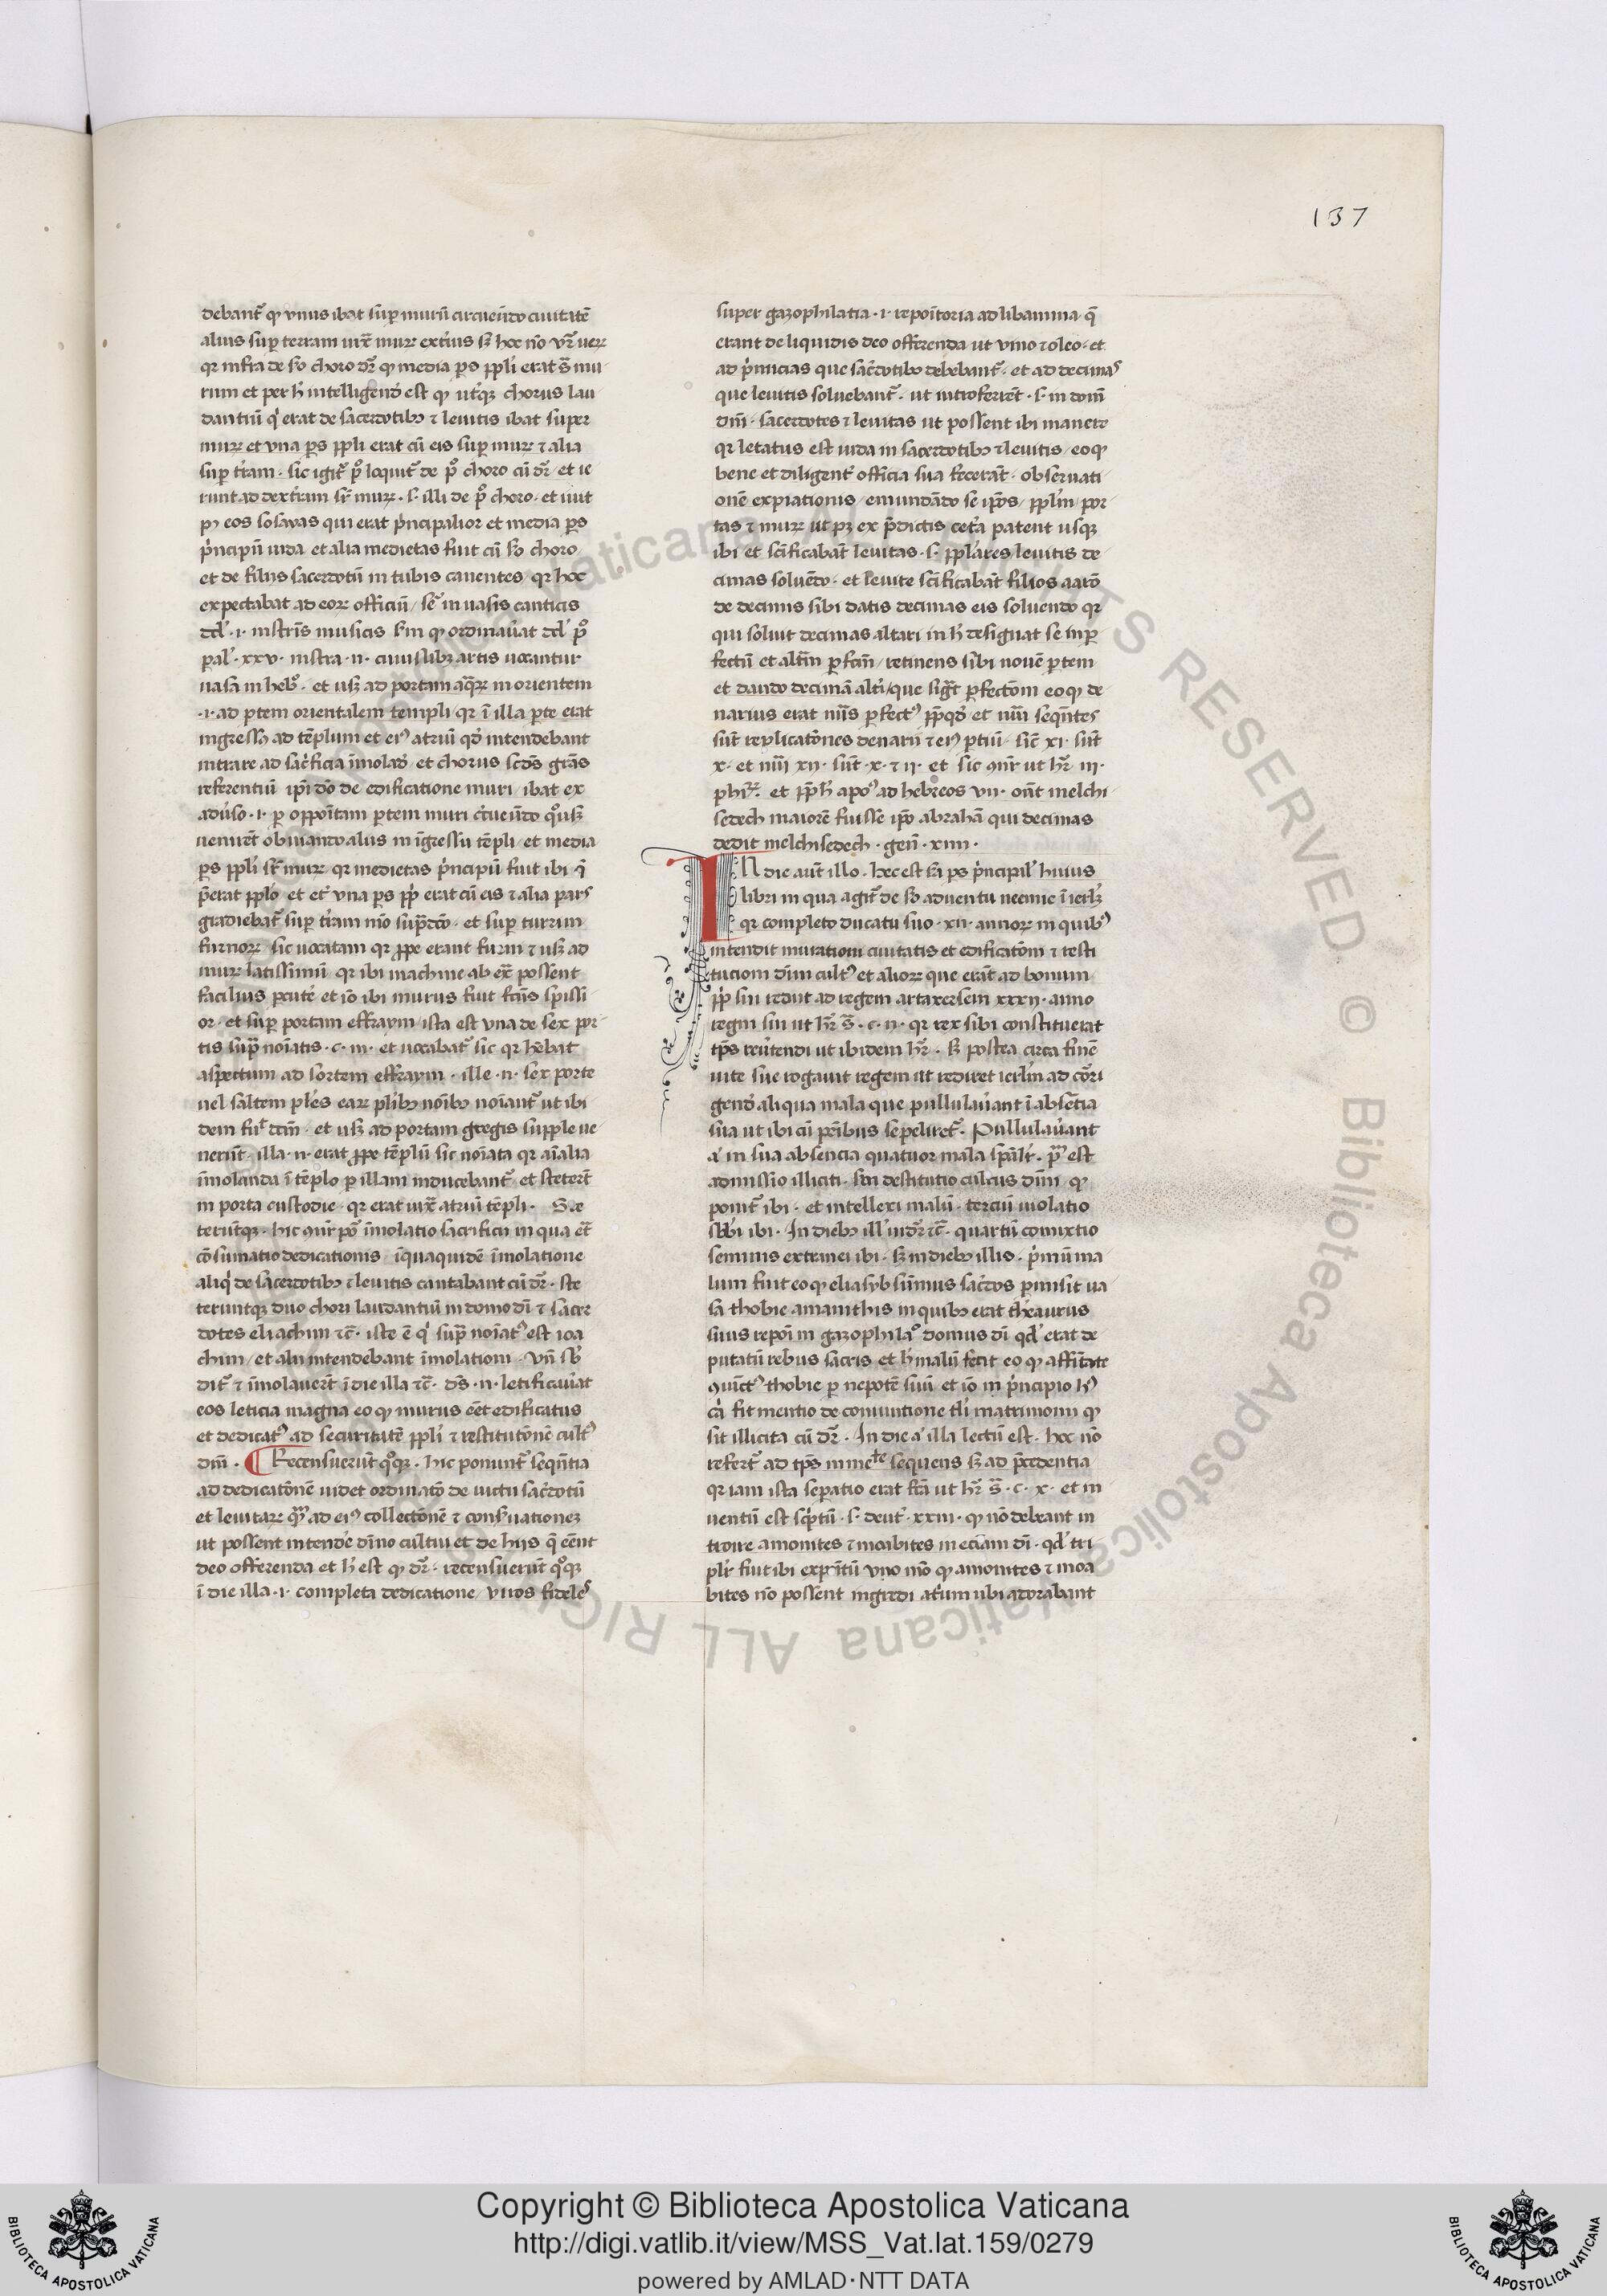 137
debant᷑ ꝙ vnus ibat suꝑ murū circueūdo ciuitatē
alius suꝑ terram iuxᵃ muꝝ exterius sꝫ hoc nō vr̄ ueꝝ
qꝛ infra de sᵒo choro dr̄ ꝙ media ꝑs ppl̓i erat sᵃ mu
rum et per h̓ intelligend̓ est ꝙ utͥqꝫ chorus lau
dantiū qͥ erat de sacerdotibꝫ ⁊ leuitis ibat super
muꝝ et vna ꝑs ppl̓i erat cū eis suꝑ muꝝ ⁊ alia
suꝑ tr̓am. sic igit᷑ pͦ loquit᷑ de pͦ choro cū dr̄. et ie
runt ad dextram sᵘᵖ muꝝ .s. illi de pͦ choro. et iuit
pꝰ eos sosayas qui erat pͥncipalior et media ꝑs
pͥncipū iuda et alia medietas fuit cū sᵒo choro
et de filiis sacerdotū in tubis canentes qꝛ hoc
expectabat ad eoꝝ officiū / sꝫ in uasis canticis
dd̓ .i. instr̄is musicis sm̄ ꝙ ordinau̓at dd̓ pͦ
ꝑal̓ .xxv. instra .n. cuiuslibꝫ artis uocantur
uasa in heb̓. et usqꝫ ad portam aqͣꝝ in orientem
.i. ad ꝑtem orientalem templi qꝛ ī illa ꝑte erat
ingressꝰ ad tēplum et eiꝰ atriū qd̓ intendebant
intrare ad sac̓ficia īmoland̓ et chorus sc̄ds gr̄as
referentiū ip̄i dō de edificatione muri ibat ex
adu̓so .i. ꝑ oppoītam ꝑtem muri c̓cueūdo qͦusqꝫ
uenirēt obuiando alus in īgressu tēpli et media
ꝑs ppl̓i sᵘᵖ muꝝ qꝛ medietas pͥncipū fuit ibi qͣ
p̄erat ppl̓o et et̄ vna ꝑs ppl̓i erat cū eis ⁊ alia pars
gradiebat᷑ suꝑ tr̓am mō supᵃdc̄o. et suꝑ turrim
furnoꝝ sic uocatam qꝛ ꝓpe erant furni ⁊ usqꝫ ad
muꝝ latissimū qꝛ ibi machine ab exᵃ possent
facilius ꝑcute̓ et iō ibi murus fuit fc̄us spissi
or. et suꝑ portam effraym / ista est vna de sex por
tis supᵃ noīatis .c. iii. et uocabat᷑ sic qꝛ hēbat
aspectum ad sortem effraym. ille .n. sex porte
uel saltem pl̓es eaꝝ pl̓ibꝫ noībꝫ noīant᷑ ut ibi
dem fuͥt dc̄m. et usqꝫ ad portam gregis supple ue
nerūt. illa .n. erat ꝓpe tēplū sic noīata qꝛ aīalia
īmolanda ī tēplo ꝑ illam inducebant᷑. et steterūt
in porta custodie. qꝛ erat iuxᵃ atriū tēpli. Ste
terūtqꝫ. hic ꝯn̄r poͥ īmolatio sacrificii in qua et̄
cōsumatio dedicationis īquaquidē īmolatione
aliqͥ de sacerdotibꝫ ⁊ leuitis cantabant cū dr̄. ste
teruntqꝫ duo chori laudantiū in domo dī ⁊ sacer
dotes eliachim ⁊c̄. iste ē qͥ supᵃ noīatꝰ est ioa
chim / et alii intendebant īmolationi. Vn̄ sb̓
dit᷑ ⁊ īmolauerūt ī die illa ⁊c̄. ds̄ .n. letificau̓at
eos leticia magna eo ꝙ murus eēt edificatus
et dedicatꝰ ad securitatē ppl̓i ⁊ restitutōnē cultꝰ
diūi. ¶ Recensuerūt qͦqꝫ. hic ponunt᷑ seqn̄tia
ad dedicatōnē uidet ordinatō de victu sac̓dotū
et leuitaꝝ qͣꝫ ad eiꝰ collectōnē ⁊ cons̓uationeꝫ
ut possent intende̓ diuīo cultui et de hiis q̄ eēnt
deo offerenda et h̓ est ꝙ dr̄. recensuerūt qͦqꝫ
ī die illa .i. completa dedicatione / viros fideles
super gazophilatia .i. repoītoria ad libamina q̄
erant de liquidis deo offerenda ut vino ⁊ oleo. et
ad pͥmicias que sac̓dotibꝫ debebant᷑. et ad decimas
que leuitis soluebant᷑. ut introferrēt .s. in domū
diūi. sacerdotes ⁊ leuitas ut possent ibi manere
qꝛ letatus est iuda in sacerdotibꝫ ⁊ leuitis / eo ꝙ
bene et diligent᷑ officia sua fecerāt. obseruati
onē expiationis / emundādo se ip̄os / ppl̓m / por
tas ⁊ muꝝ ut pꝫ ex p̄dictis cet̓a patent usqꝫ
ibi et sc̄ificabāt leuitas .s. ppl̓ares leuitis de
cimas soluēdo. et leuite sc̄ificabāt filios aarō
de decimis sibi datis decimas eis soluendo qꝛ
qui soluit decimas altari in h̓ designat se inꝑ
fectū et altm̄ ꝑfc̄m / retinens sibi nouē ꝑtem
et dando decimā alti / que sigͣt ꝑfectōm eo ꝙ de
narius erat nūs ꝑfectꝰ ppqd̓ et nūi seqn̄tes
sūt replicatōnes denarii ⁊ eiꝰ ꝑtiū. sic̄ xi. sūt
x. et nūi xii. sūt .x. ⁊ ii. et sic ꝯn̄r ut hr̄ iii.
phiͨꝝ. et pp̄h̓ apoꝰ ad hebreos vii. on̄t melchi
sedech maiorē fuisse ip̄o abrahā qui decimas
dedit melchisedech. gen̄. xiiii.
In die aut̄ illo. hec est sᵃ ꝑs pͥncipal̓ huius
libri in qua agit᷑ de sᵒo aduentu neemie ī ierl̓ꝫ
qꝛ completo ducatu suo .xii. annoꝝ in quibꝰ
intendit murationi ciuitatis et edificatōni ⁊ resti
tucioni diuīi cultꝰ et alioꝝ que erāt ad bonum
ppl̓i sui rediit ad regem artaxersem xxxii. anno
regni sui ut hr̄ sᵃ .c. ii. qꝛ rex sibi constituerat
tp̄s reu̓tendi ut ibidem hr̄. sꝫ postea circa finē
uite sue rogauit regem ut rediret ierl̓m ad cōri
gend̓ aliqua mala que pullulau̓ant ī absētia
sua ut ibi cū pr̄ibus sepeliret᷑. Pullulau̓ant
aͥ in sua absencia quatuor mala spāl̓r. pͥm̄ est
admissio illiciti. sᵒm destitutio cultus diūni ꝙ
ponit᷑ ibi. et intellexi malū. terciū uiolatio
sb̄bi ibi. In diebꝫ ill̓ uidr̄ ⁊c̄. quartū comixtio
seminis extranei ibi. sꝫ in diebꝫ illis. pͥmū ma
lum fuit eo ꝙ eliasyb sūmus sac̓dos ꝑmisit ua
sa thobie amanithis in quibꝫ erat thesaurus
suus reponi in gazophilaͦ domus dī qd̓ erat de
putatū rebus sacris et h̓ malū fecit eo ꝙ affitate
ꝯiūctꝰ thobie ꝑ nepotē suū et iō in pͥncipio hꝰ
caͥ fit mentio de coniunctione tl̓i matrimonii ꝙ
sit illicita cū dr̄. In die aͥ illa lectū est. hoc nō
refert᷑ ad tp̄s inmeᵗᵉ sequens sꝫ ad p̄cedentia
qꝛ iam ista seꝑatio erat fc̄a ut hr̄ sᵃ .c. x. et in
uentū est sc̓ptū .s. deut̓. xxiii. ꝙ nō debeant in
troire amonites ⁊ moabites in ecc̄iam dī. qd̓ tri
pl̓r fuit ibi exp̄ositū vno mō ꝙ amonites ⁊ moa
bites nō possent ingredi atrium ubi adorabant
Copyright © Biblioteca Apostolica Vaticana
http://digi.vatlib.it/view/MSS_Vat.lat.159/0279
powered by AMLAD·NTT DATA